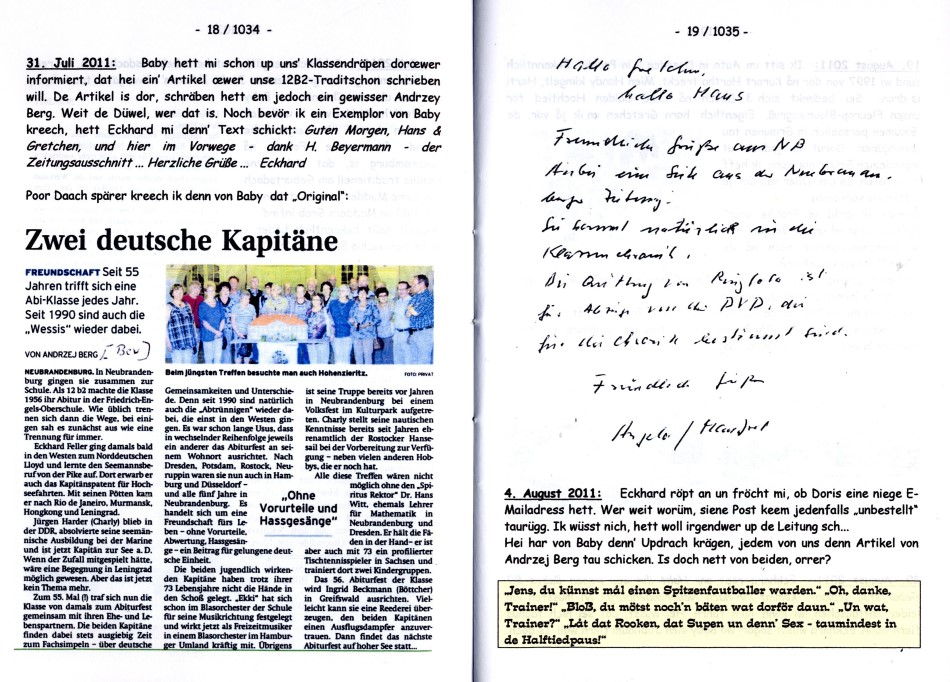 - 18 / 1034 -
31. Juli 2011: Baby hett mi schon up uns' Klassendräpen doröwer
informiert, dat hei ein' Artikel œwer unse 12B2-Traditschon schrieben
will. De Artikel is dor, schräben hett em jedoch ein gewisser Andrzey
Berg. Weit de Düwel, wer dat is. Noch bevör ik ein Exemplor von Baby
kreech, hett Eckhard mi denn' Text schickt: Guten Morgen, Hans &
Gretchen, und hier im Vorwege - dank H. Beyermann - der
Zeitungsausschnitt ... Herzliche Grüße ... Eckhard
Poor Daach spärer kreech ik denn von Baby dat „Original":
Zwei deutsche Kapitäne
FREUNDSCHAFT Seit 55
Jahren trifft sich eine
Abi-Klasse jedes Jahr.
Seit 1990 sind auch die
„Wessis" wieder dabei.
VON ANDRZEJ BERG
Beim jüngsten Treffen besuchte man auch Hohenzieritz.
FOTO: PRIVAT
NEUBRANDENBURG. In Neubranden-
burg gingen sie zusammen zur
Schule. Als 12 b2 machte die Klasse
1956 ihr Abitur in der Friedrich-En-
gels-Oberschule. Wie üblich tren-
nen sich dann die Wege, bei eini-
gen sah es zunächst aus wie eine
Trennung für immer.
Eckhard Feller ging damals bald
in den Westen zum Norddeutschen
Lloyd und lernte den Seemannsbe-
ruf von der Pike auf. Dort erwarb er
auch das Kapitänspatent für Hoch-
seefahrten. Mit seinen Pötten kam
er nach Rio de Janeiro, Murmansk,
Hongkong und Leningrad.
Jürgen Harder (Charly) blieb in
der DDR, absolvierte seine seemän-
nische Ausbildung bei der Marine
und ist jetzt Kapitän zur See a. D.
Wenn der Zufall mitgespielt hätte,
wäre eine Begegnung in Leningrad
möglich gewesen. Aber das ist jetzt
kein Thema mehr.
Zum 55. Mal (!) traf sich nun die
Klasse von damals zum Abiturfest
gemeinsam mit ihren Ehe- und Le-
benspartnern. Die beiden Kapitäne
finden dabei stets ausgiebig Zeit
zum Fachsimpeln – über deutsche
Gemeinsamkeiten und Unterschie-
de. Denn seit 1990 sind natürlich
auch die „Abtrünnigen" wieder da-
bei, die einst in den Westen gin-
gen. Es war schon lange Usus, dass
in wechselnder Reihenfolge jeweils
ein anderer das Abiturfest an sei-
nem Wohnort ausrichtet. Nach
Dresden, Potsdam, Rostock, Neu-
ruppin waren sie nun auch in Ham-
burg und Düsseldorf –
und alle fünf Jahre in
Neubrandenburg. Es
handelt sich um eine
Freundschaft fürs Le-
ben – ohne Vorurteile,
Abwertung, Hassgesän-
ge – ein Beitrag für gelungene deut-
sche Einheit.
Die beiden jugendlich wirken-
den Kapitäne haben trotz ihrer
73 Lebensjahre nicht die Hände in
den Schoß gelegt. „Ekki" hat sich
schon im Blasorchester der Schule
für seine Musikrichtung festgelegt
und wirkt jetzt als Freizeitmusiker
in einem Blasorchester im Hambur-
ger Umland kräftig mit. Übrigens
„Ohne
Vorurteile und
Hassgesänge"
ist seine Truppe bereits vor Jahren
in Neubrandenburg bei einem
Volksfest im Kulturpark aufgetre-
ten. Charly stellt seine nautischen
Kenntnisse bereits seit Jahren eh-
renamtlich der Rostocker Hanse-
sail bei der Vorbereitung zur Verfü-
gung – neben vielen anderen Hob-
bys, die er noch hat.
Alle diese Treffen wären nicht
möglich ohne den „Spi-
ritus Rektor" Dr. Hans
Witt, ehemals Lehrer
für Mathematik in
Neubrandenburg und
Dresden. Er hält die Fä-
den in der Hand – er ist
aber auch mit 73 ein profilierter
Tischtennisspieler in Sachsen und
trainiert dort zwei Kindergruppen.
Das 56. Abiturfest der Klasse
wird Ingrid Beckmann (Böttcher)
in Greifswald ausrichten. Viel-
leicht kann sie eine Reederei über-
zeugen, den beiden Kapitänen
einen Ausflugsdampfer anzuver-
trauen. Dann findet das nächste
Abiturfest auf hoher See statt...
- 19 / 1035 -
Hallo Gretchen,
hallo Hans
Freundliche Grüße aus NB
Anbei eine Seite aus der Neubranden-
burger Zeitung.
Sie kommt natürlich in die
Klassenchronik.
Die Quittung von Ringfoto ist
für Abzüge und die DVD, die
für die Chronik bestimmt sind.
Freundliche Grüße
Angela / Manfred
4. August 2011: Eckhard röpt an un fröcht mi, ob Doris eine niege E-
Mailadress hett. Wer weit worüm, siene Post keem jedenfalls „unbestellt"
taurügg. Ik wüsst nich, hett woll irgendwer up de Leitung sch...
Hei har von Baby denn' Updrach krägen, jedem von uns denn Artikel von
Andrzej Berg tau schicken. Is doch nett von beiden, orrer?
„Jens, du künnst mål einen Spitzenfautballer warden." „Oh, danke,
Trainer!" „Bloß, du mötst noch'n bäten wat dorför daun." „Un wat,
Trainer?" „Låt dat Rooken, dat Supen un denn' Sex - taumindest in
de Halftiedpaus!"